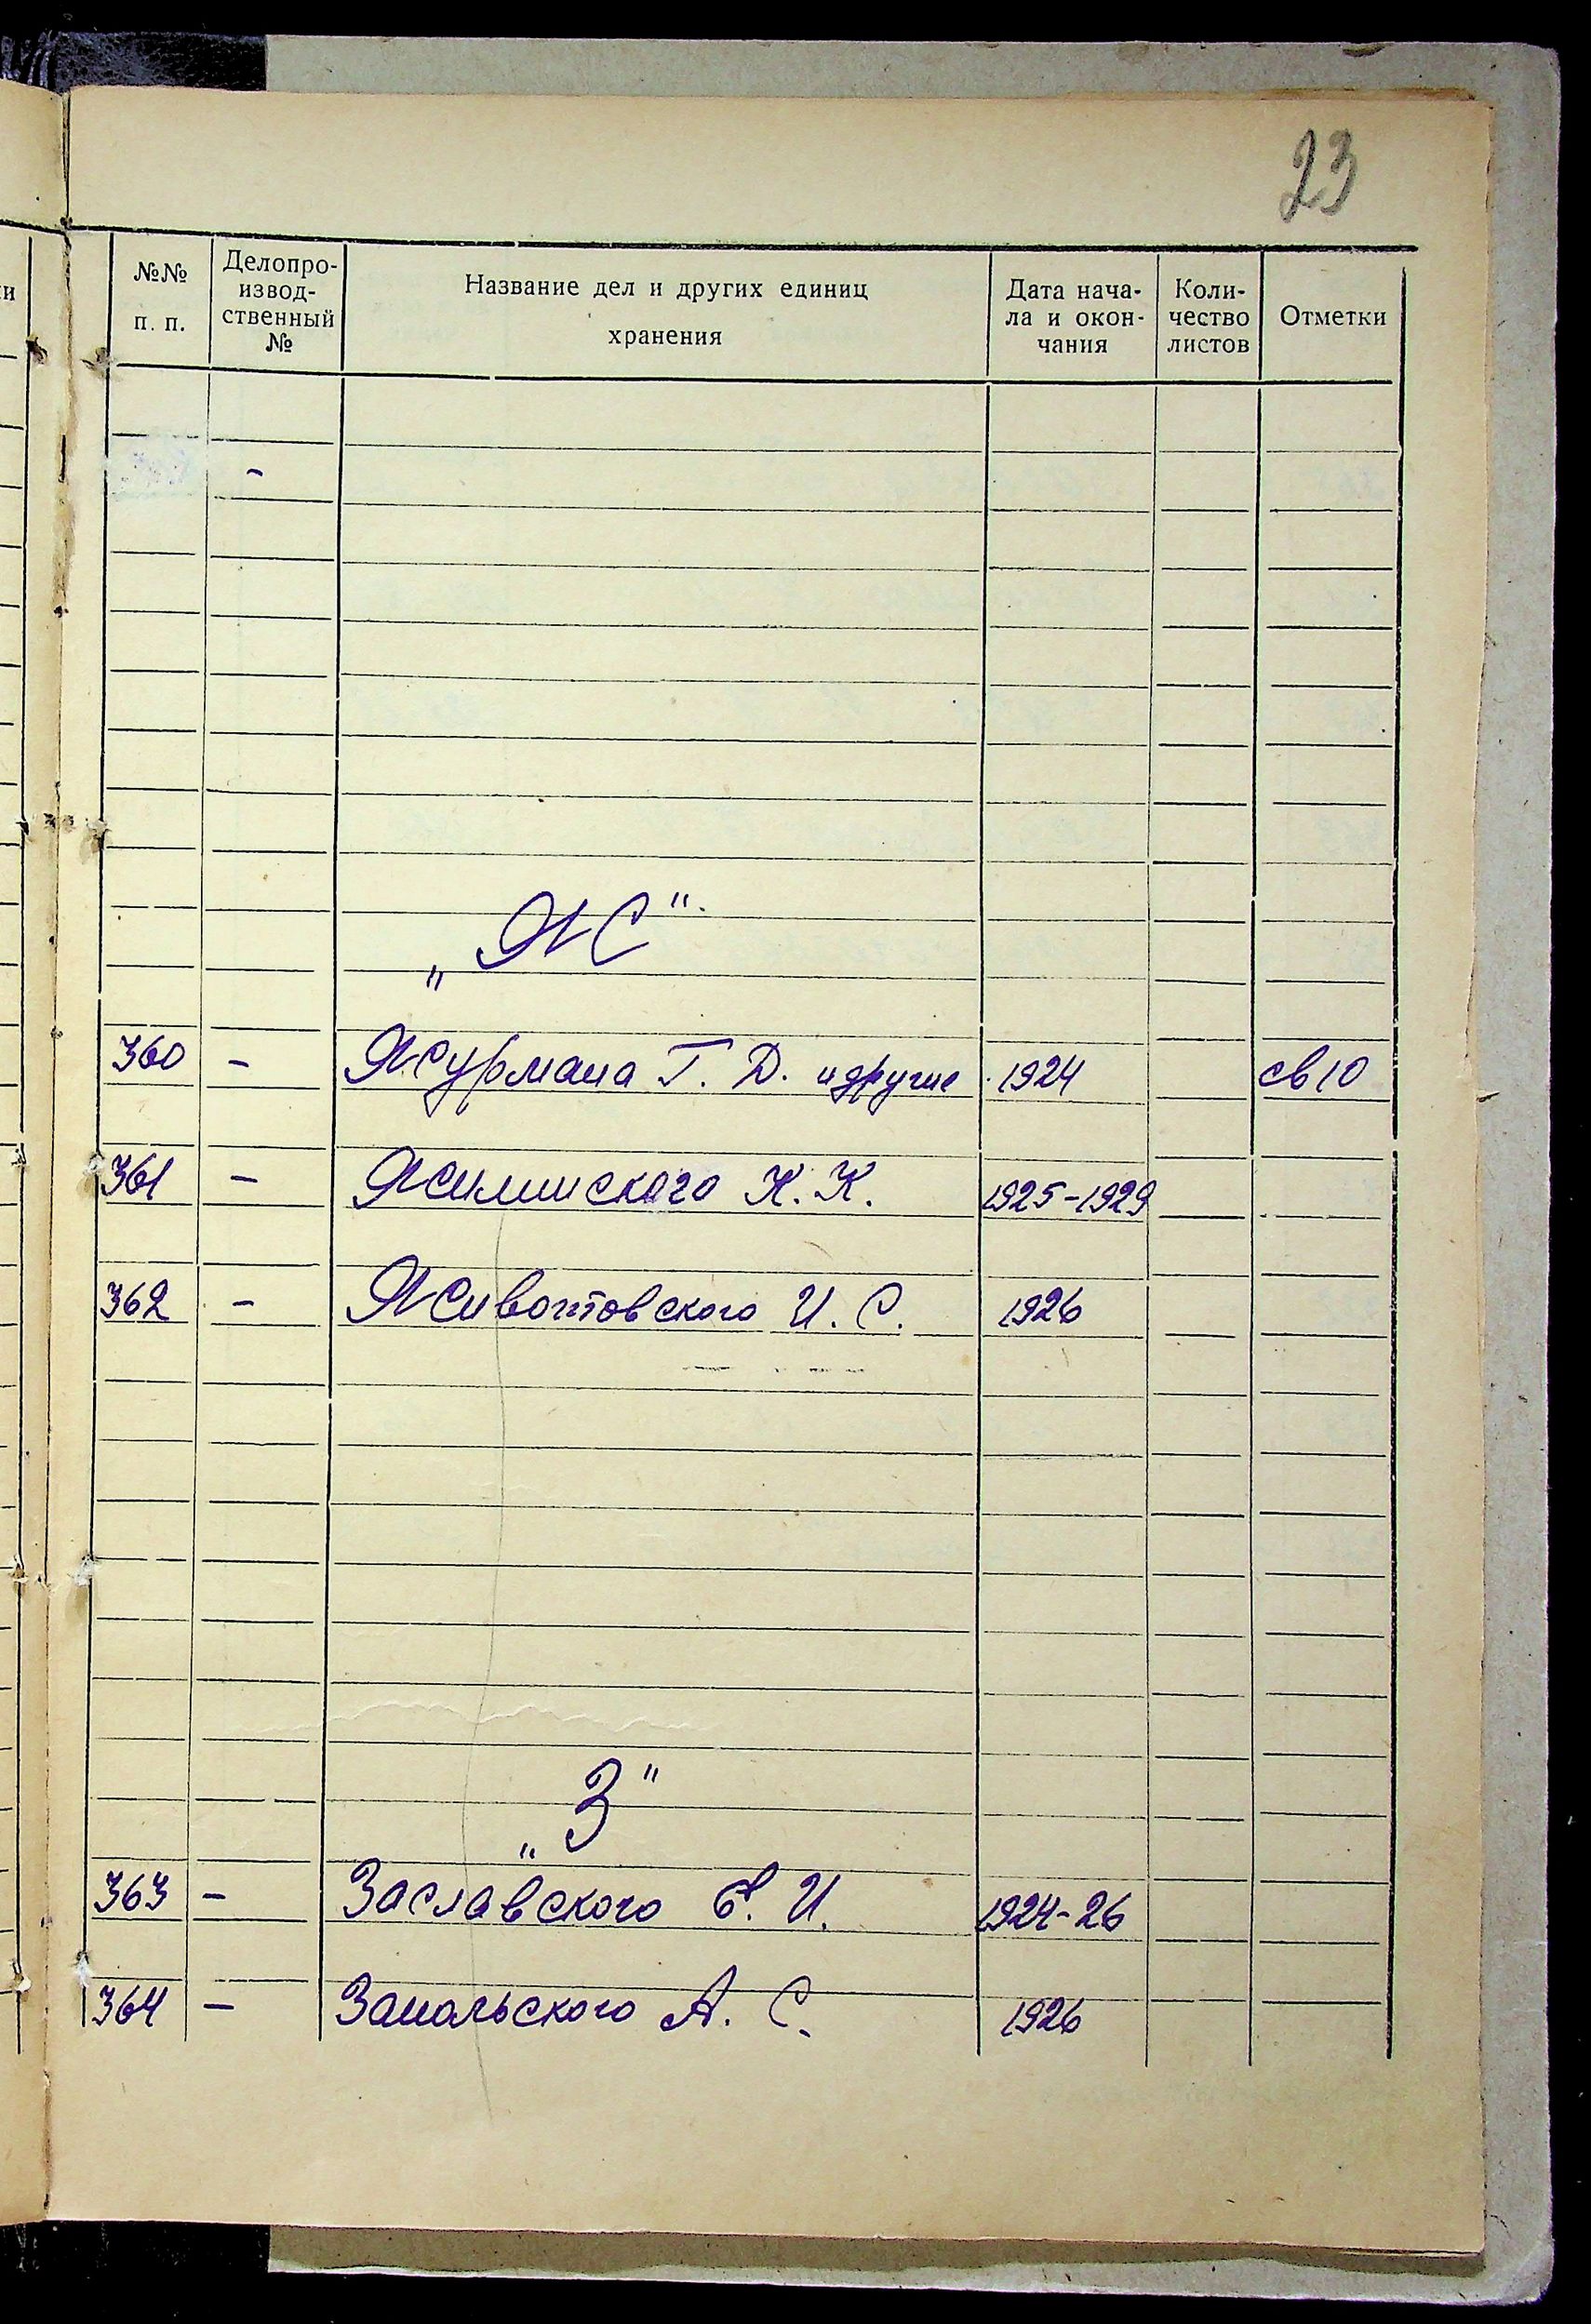 23
№№ п. п.
Делопро-
извод-
ственный
№
Название дел и других единиц
хранения
Дата нача-
ла и окон-
чания
Коли-
чество
листов
Отметки
-
„Ж“.
360 - Журмана Г. Д. и другие 1924 св 10
361 - К. К. 1925-1929
362 - Животовского И. С. 1926
„З“
363 - Заславского Б. И. 1924-26
364 - Запольского А. С. 1926